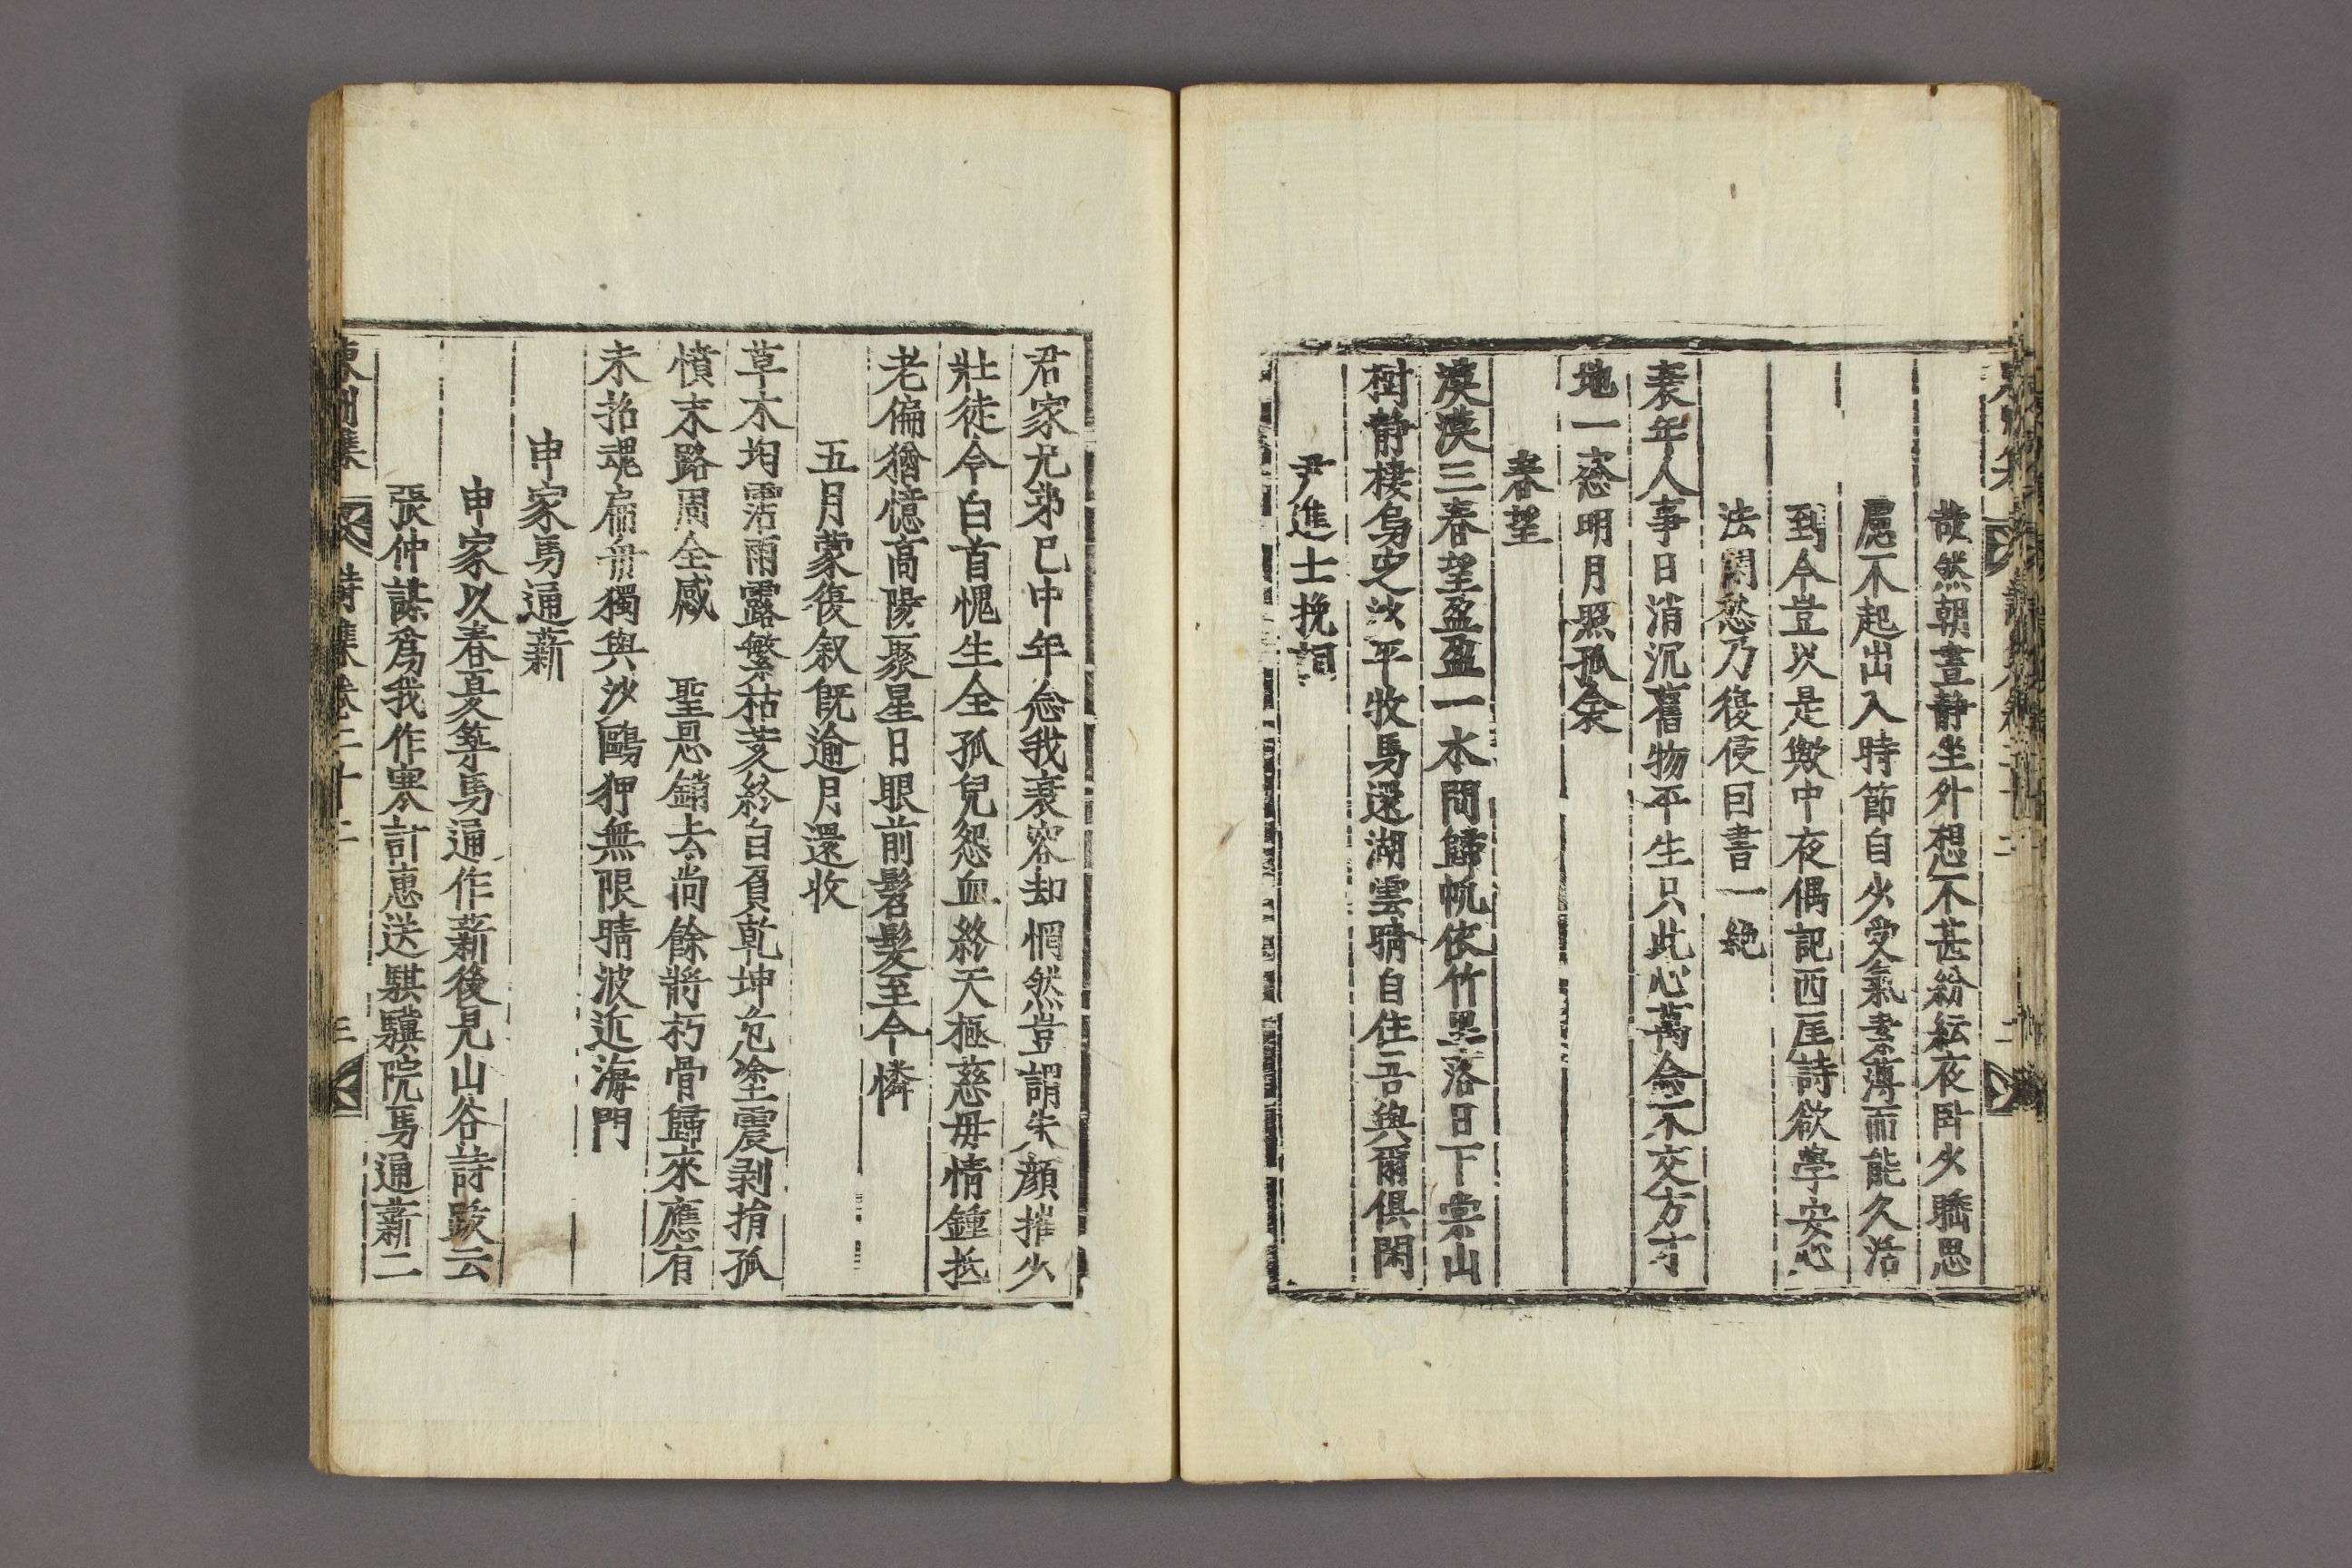 哉然朝晝靜坐外想不甚紛紜夜臥少驕思
慮不起出入時節自少受氣素薄而能久活
到今豈以是歟中夜偶記西厓詩欲學安心
法閑愁乃復侵曰書一絶
衰年人事日消沉舊物平生只此心萬念不交方寸
地一窓明月照孤衾
春望
漠漠三春望盈盈一水間歸帆依竹墨落日下棠山
樹靜棲烏定沙平牧馬還湖雲晴自住吾與爾俱閑
尹進士挽詞
君家兄弟已中年忩我衰容却惘然豈謂朱顔摧少
壯徒令白首愧生全孤兒怨血終天極慈母情鍾抵
老偏猶憶高陽聚星日眼前髫髮至今憐
五月蒙復叙旣逾月還收
草木均霑雨露繁枯荄終自負乾坤危塗震剥捐孤
憤末路周全感 聖恩銷去尙餘將朽骨歸來應有
未招魂扁舟獨與沙鷗狎無限晴波近海門
申家馬通薪
申家以春夏築馬通作薪後見山谷詩跋云
張仲謀爲我作寒計惠送騏驥院馬通薪二
東州集 詩集卷二十二 三